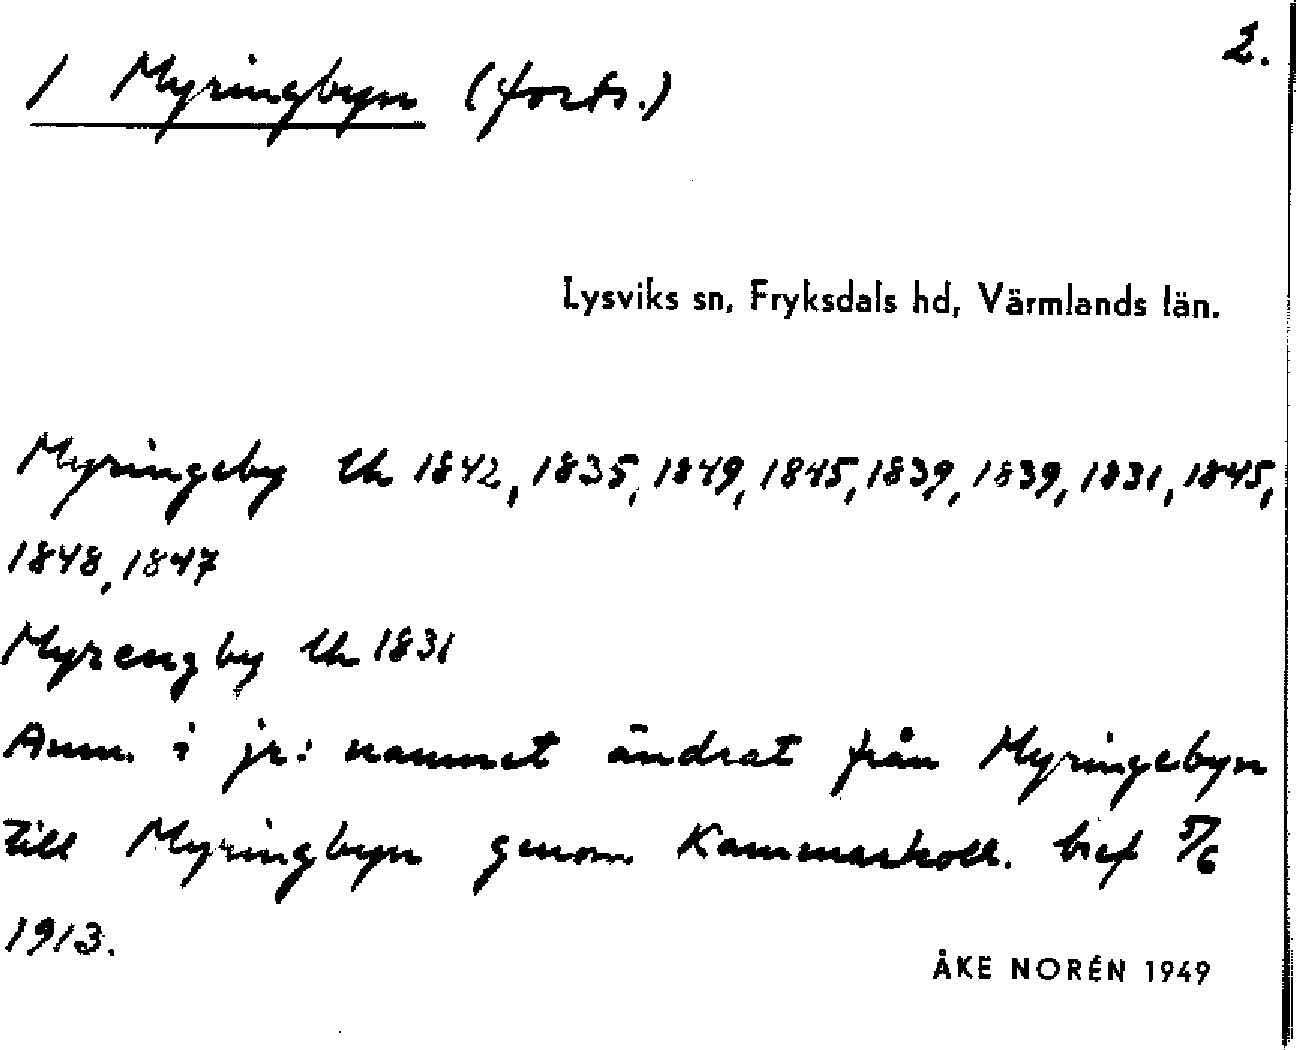 2.
/ Myringbyn (forts.)
Lysviks sn, Fryksdals hd, Värmlands län.
Myringeby lh 1842, 1835, 1849, 1845, 1839, 1839, 1831, 1845,
1848, 1847
Myrengby lh 1831
Anm. i jr: namnet ändrat från Myringebyn
till Myringbyn genom Kammarkoll. bref 5/6
1913.
ÅKE NORÉN 1949